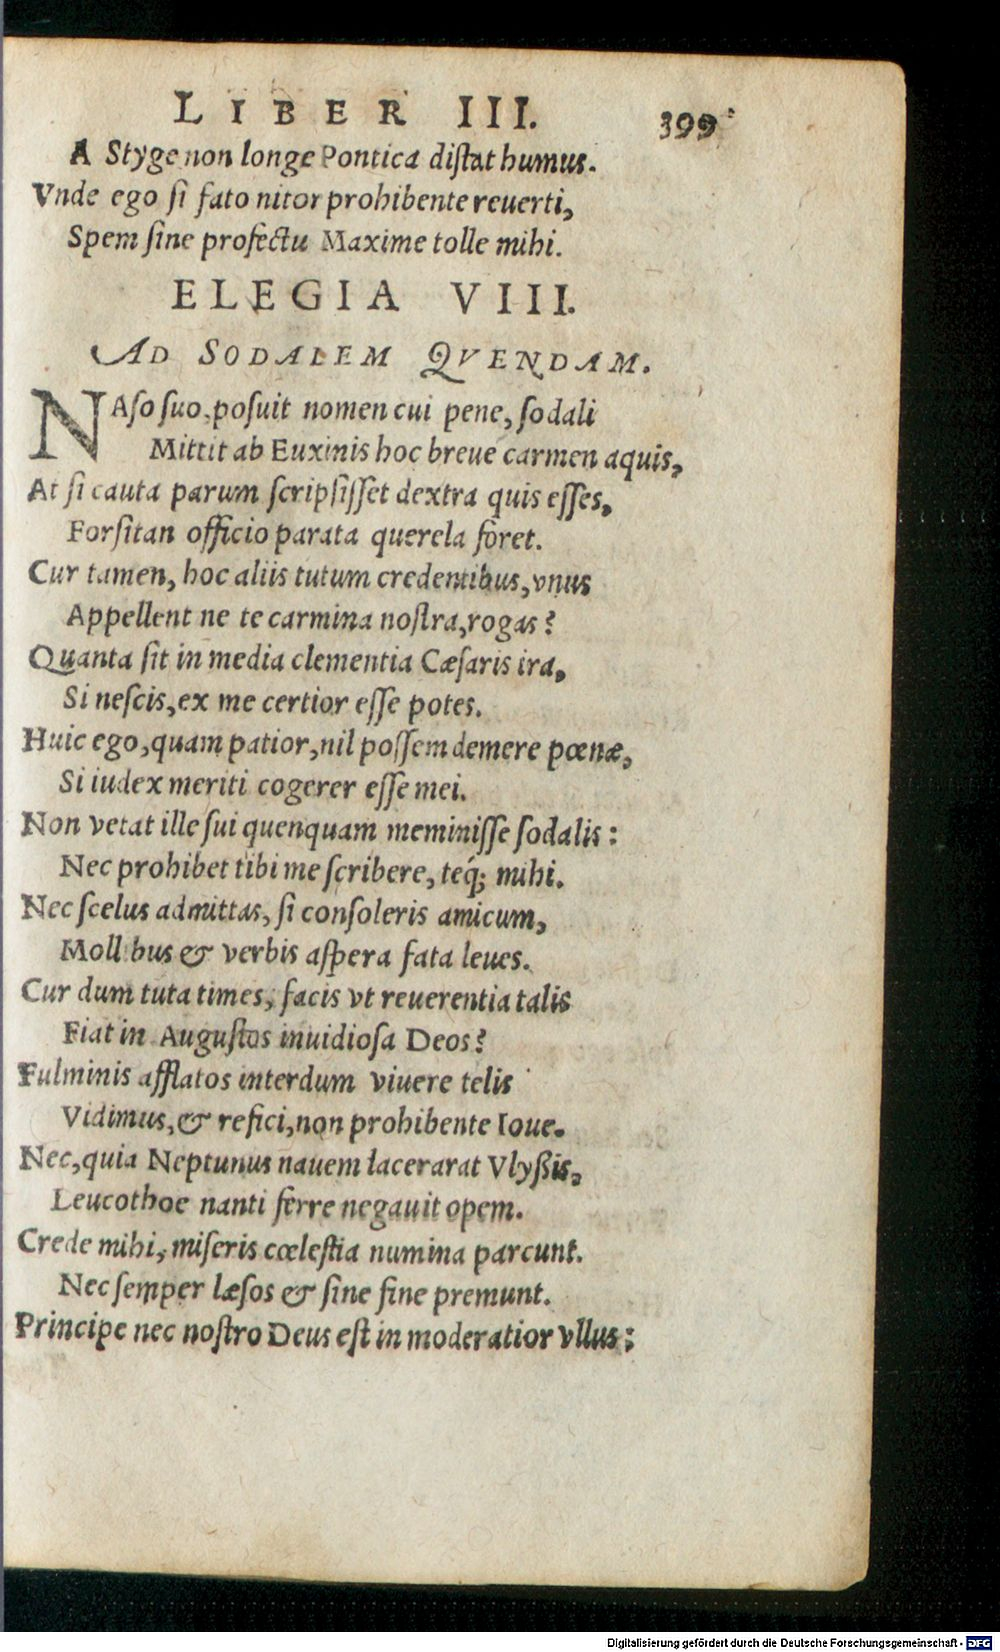 LIBER III. 399
A Styge non longe Pontica distat humus.
Vnde ego si fato nitor prohibente reuerti,
Spem sine profectu Maxime tolle mihi.
ELEGIA VIII.
AD SODALEM QVENDAM.
NAso suo, posuit nomen cui pene, sodali
Mittit ab Euxinis hoc breue carmen aquis,
At si cauta parum scripsisset dextra quis esses,
Forsitan officio parata querela foret.
Cur tamen, hoc aliis tutum credentibus, vnus
Appellent ne te carmina nostra, rogas?
Quanta sit in media clementia Cæsaris ira,
Si nescis, ex me certior esse potes.
Huic ego, quam patior, nil possem demere pœnæ,
Si iudex meriti cogerer esse mei.
Non vetat ille sui quenquam meminisse sodalis:
Nec prohibet tibi me scribere, teq́; mihi.
Nec scelus admittas, si consoleris amicum,
Moll bus & verbis aspera fata leues.
Cur dum tuta times, facis vt reuerentia talis
Fiat in Augustos inuidiosa Deos?
Fulminis afflatos interdum viuere telis
Vidimus, & refici, non prohibente Ioue.
Nec, quia Neptunus nauem lacerarat Vlyßis,
Leucothoe nanti ferre negauit opem.
Crede mihi, miseris cœlestia numina parcunt.
Nec semper læsos & sine fine premunt.
Principe nec nostro Deus est in moderatior vllus:
Digitalisierung gefördert durch die Deutsche Forschungsgemeinschaft - DFG